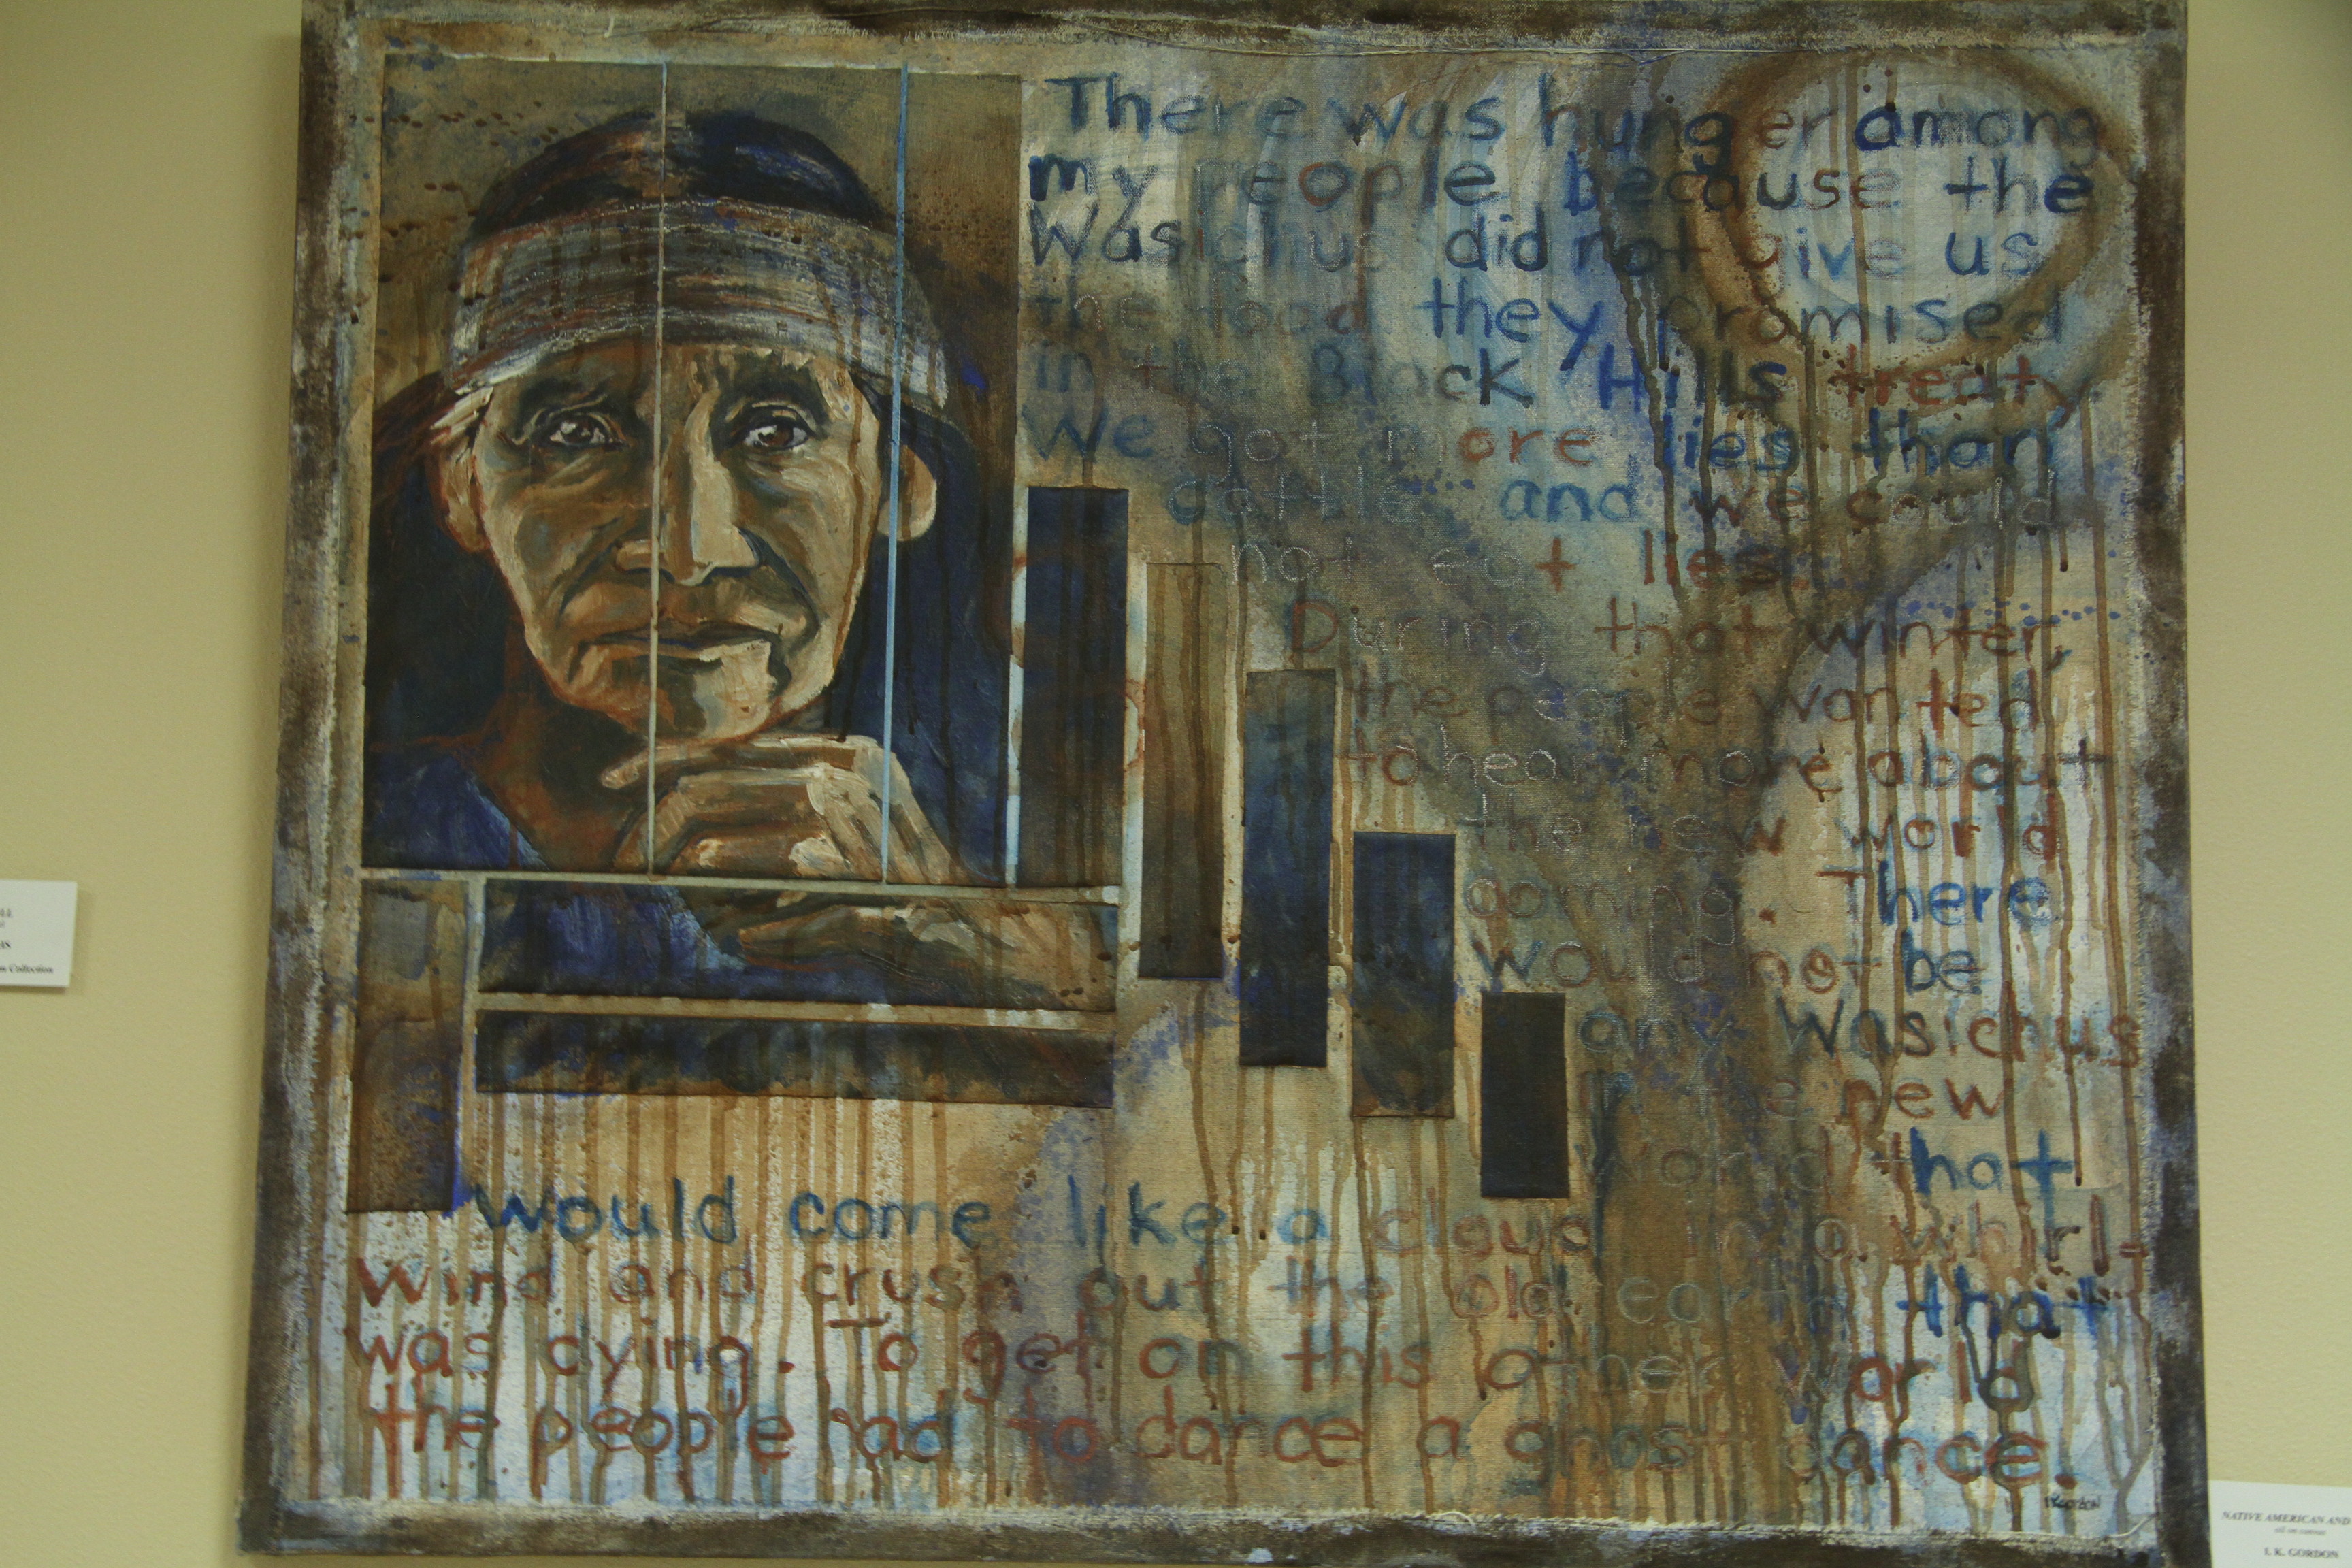 There was hunger among
my people because the
Wasichus did not give us
the food they promised
in the Black Hills treaty.
We got more lies than
cattle, and we could
not eat lies.
During that winter,
the people wanted
to hear more about
the new world
coming. There
would not be
any Wasichus
in the new
world that
would come like a cloud in a whirl-
wind and crush out the old earth that
was dying. To get on this other world
the people had to dance a ghost dance.
I.K. GORDON
NATIVE AMERICAN AND
oil on canvas
I. K. GORDON
Collection